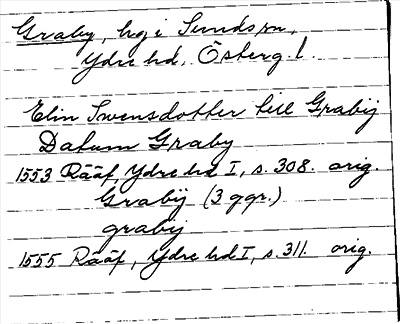 Graby, hg i Sunds sn,
Ydre hd, Österg. l.
Elin Swensdotter till Grabij
Datum Graby
1553 Rääf, Ydre hd I, s. 308. orig.
Grabij (3 ggr.)
grabij
1555 Rääf, Ydre hd I, s. 311. orig.